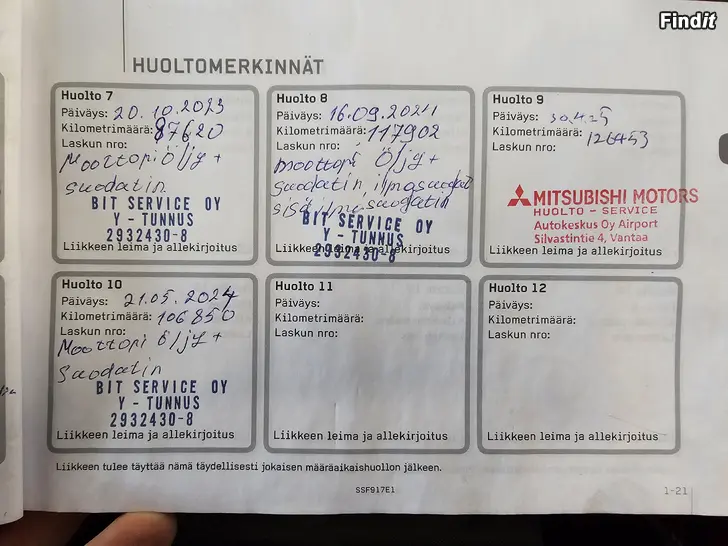 Findit
HUOLTOMERKINNÄT
Huolto 7
Päiväys: 20.10.2023
Kilometrimäärä: 87620
Laskun nro:
Moottopiöljy +
suodatin
BIT SERVICE OY
Y - TUNNUS
2932430-8
Liikkeen leima ja allekirjoitus
Huolto 8
Päiväys: 16.09.2024
Kilometrimäärä: 117902
Laskun nro:
moottopi Öljy +
suodatin, ilmasuodat
sisä ilmasuogatin
BIT SERVICE OY
Y - TUNNUS
2932430-8
Liikkeen leima ja allekirjoitus
Huolto 9
Päiväys: 30.4.25
Kilometrimäärä: 126453
Laskun nro:
MITSUBISHI MOTORS
HUOLTO - SERVICE
Autokeskus Oy Airport
Silvastintie 4, Vantaa
Liikkeen leima ja allekirjoitus
Huolto 10
Päiväys: 21.05.2024
Kilometrimäärä: 106850
Laskun nro:
Moottopi öljy +
Suodatin
BIT SERVICE OY
Y - TUNNUS
2932430-8
Liikkeen leima ja allekirjoitus
Huolto 11
Päiväys:
Kilometrimäärä:
Laskun nro:
Liikkeen leima ja allekirjoitus
Huolto 12
Päiväys:
Kilometrimäärä:
Laskun nro:
Liikkeen leima ja allekirjoitus
Liikkeen tulee täyttää nämä täydellisesti jokaisen määräaikaishuollon jälkeen.
SSF917E1
1-21